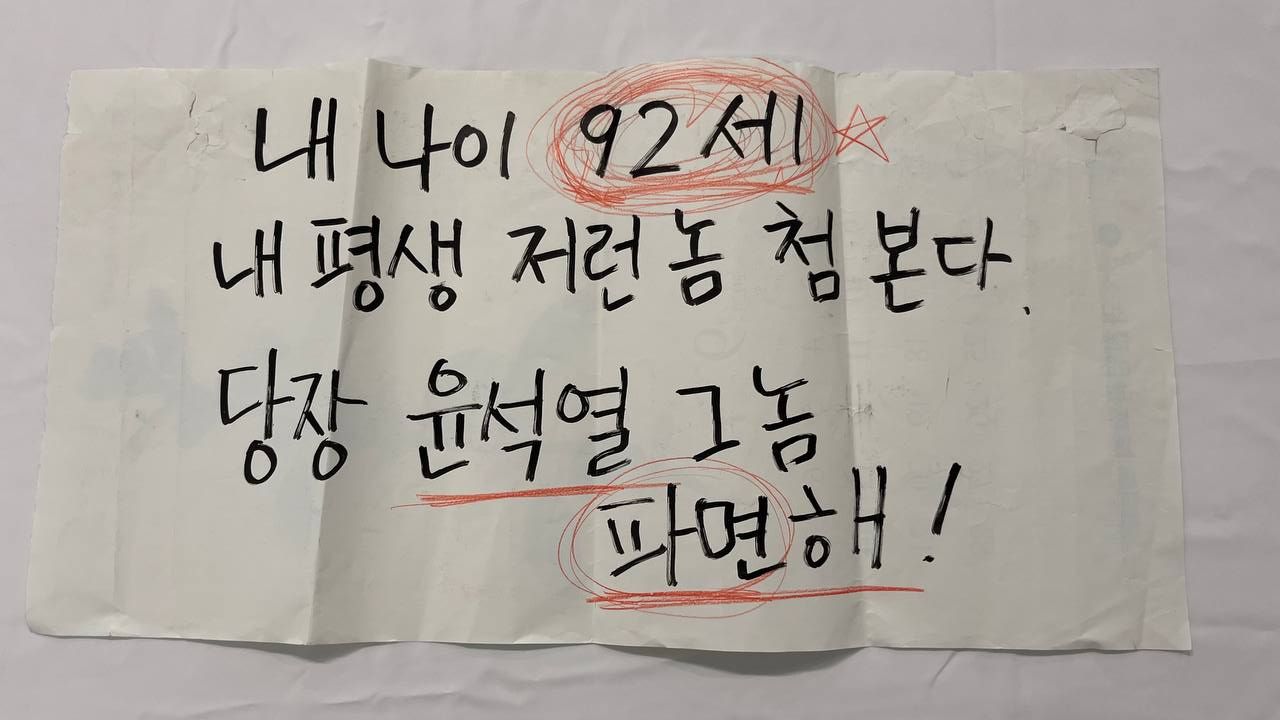 내 나이 92세☆
내 평생 저런 놈 첨 본다.
당장 윤석열 그놈
파면해!